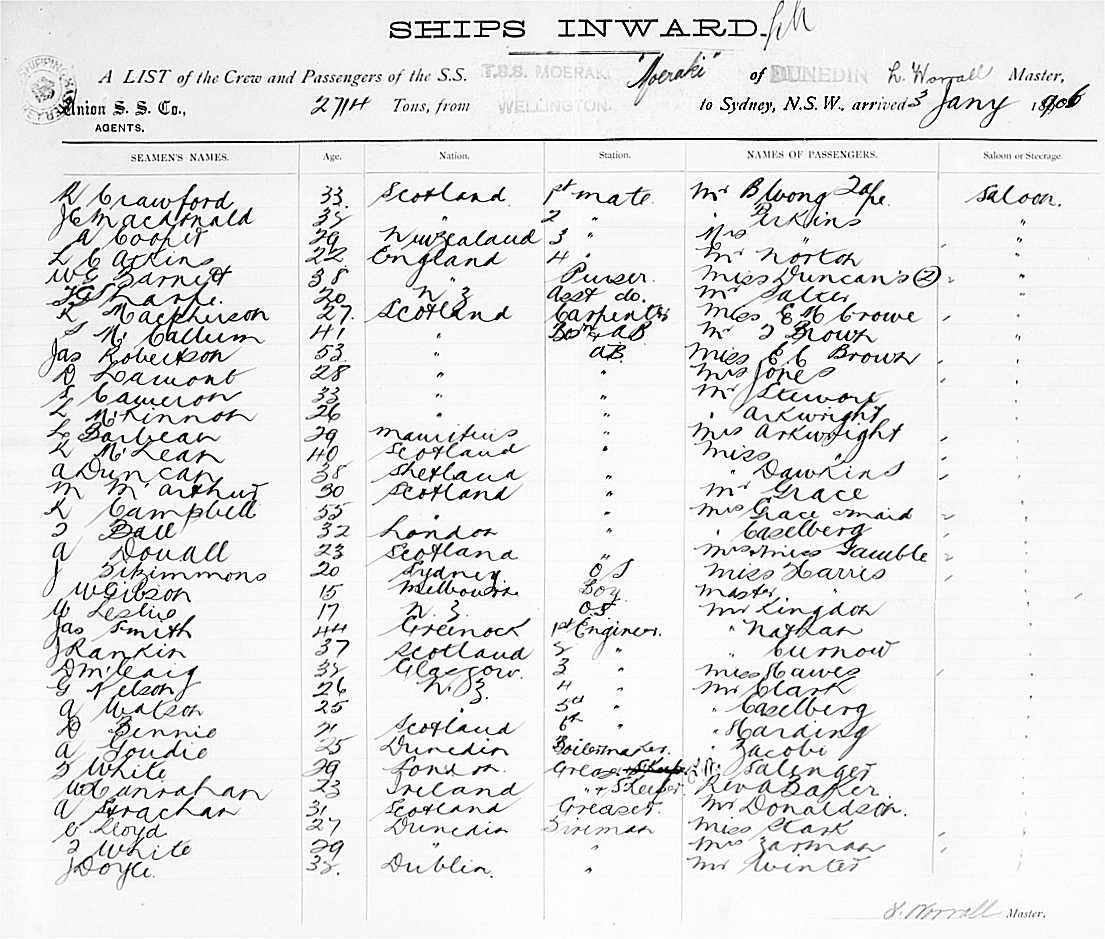 SHIPS INWARD.
A LIST of the Crew and Passengers of the S.S. T.S.S. MOERAKI "Moeraki" of DUNEDIN L. Worrall Master,
Union S. S. Co., 2714 Tons, from WELLINGTON. to Sydney, N.S.W., arrived 3 Jany 1906
AGENTS.
SEAMEN'S NAMES. Age. Nation. Station. NAMES OF PASSENGERS. Saloon or Steerage.
R Crawford 33 Scotland 1st mate Mr B Wong Saloon.
J C Macdonald 38 " 2 " " Perkins "
A Cooper 29 New Zealand 3 " Mrs " "
L C Atkins 22 England 4 " Mr Norton "
W G Barnett 38 " Purser. Miss Duncan's (2) "
20 N Z Asst do. Mr Salter "
K Macpherson 27. Scotland Carpenter Miss E M Crowe "
S McCallum 41 " Bosn & AB Mr T Brown "
Jas Robertson 53 " AB. Miss E C Brown
D Lamont 28 " " Mrs Jones
S Cameron 33 " " Mr Stewart
L McKinnon 26 " " " Arkwright
L Barbeau 29 Mauritius " Mrs Arkwright
L McLean 40 Scotland " Miss "
A Duncan 38 Shetland " " Dawkins
M McArthur 30 Scotland " Mr Grace
R Campbell 55 " " Mrs Grace & maid
T Ball 32 London " " Caselberg
A Douall 23 Scotland " Mrs & Miss Gamble
J Fitzimmons 20 Sydney O S Miss Harris
W Gibson 15 Melbourne Boy Master "
W Leslie 17 N. Z. OS Mr Kingdon
Jas Smith 44 Greenock 1st Engineer. " Nathan
J Rankin 37 Scotland 2 " " Curnow
D McCaig 38 Glasgow. 3 " Miss Hawes
G Nelson 26 N. Z. 4 " Mr Clark
A Watson 25 " 5th " " Caselberg
D Bennie 21 Scotland 6th " " Harding
A Goudie 25 Dunedin Boilermaker. " Jacobi
T White 29 London. Greaser " Salinger
W Hanrahan 23 Ireland " & SKeeper Rev A Baker.
A Strachan 31 Scotland Greaser. Mr Donaldson.
C Lloyd 27 Dunedin Fireman Miss Clark
T White 29 " " Mrs Zarman
J Doyle. 38. Dublin. " Mr Winter
L. Worrall Master.